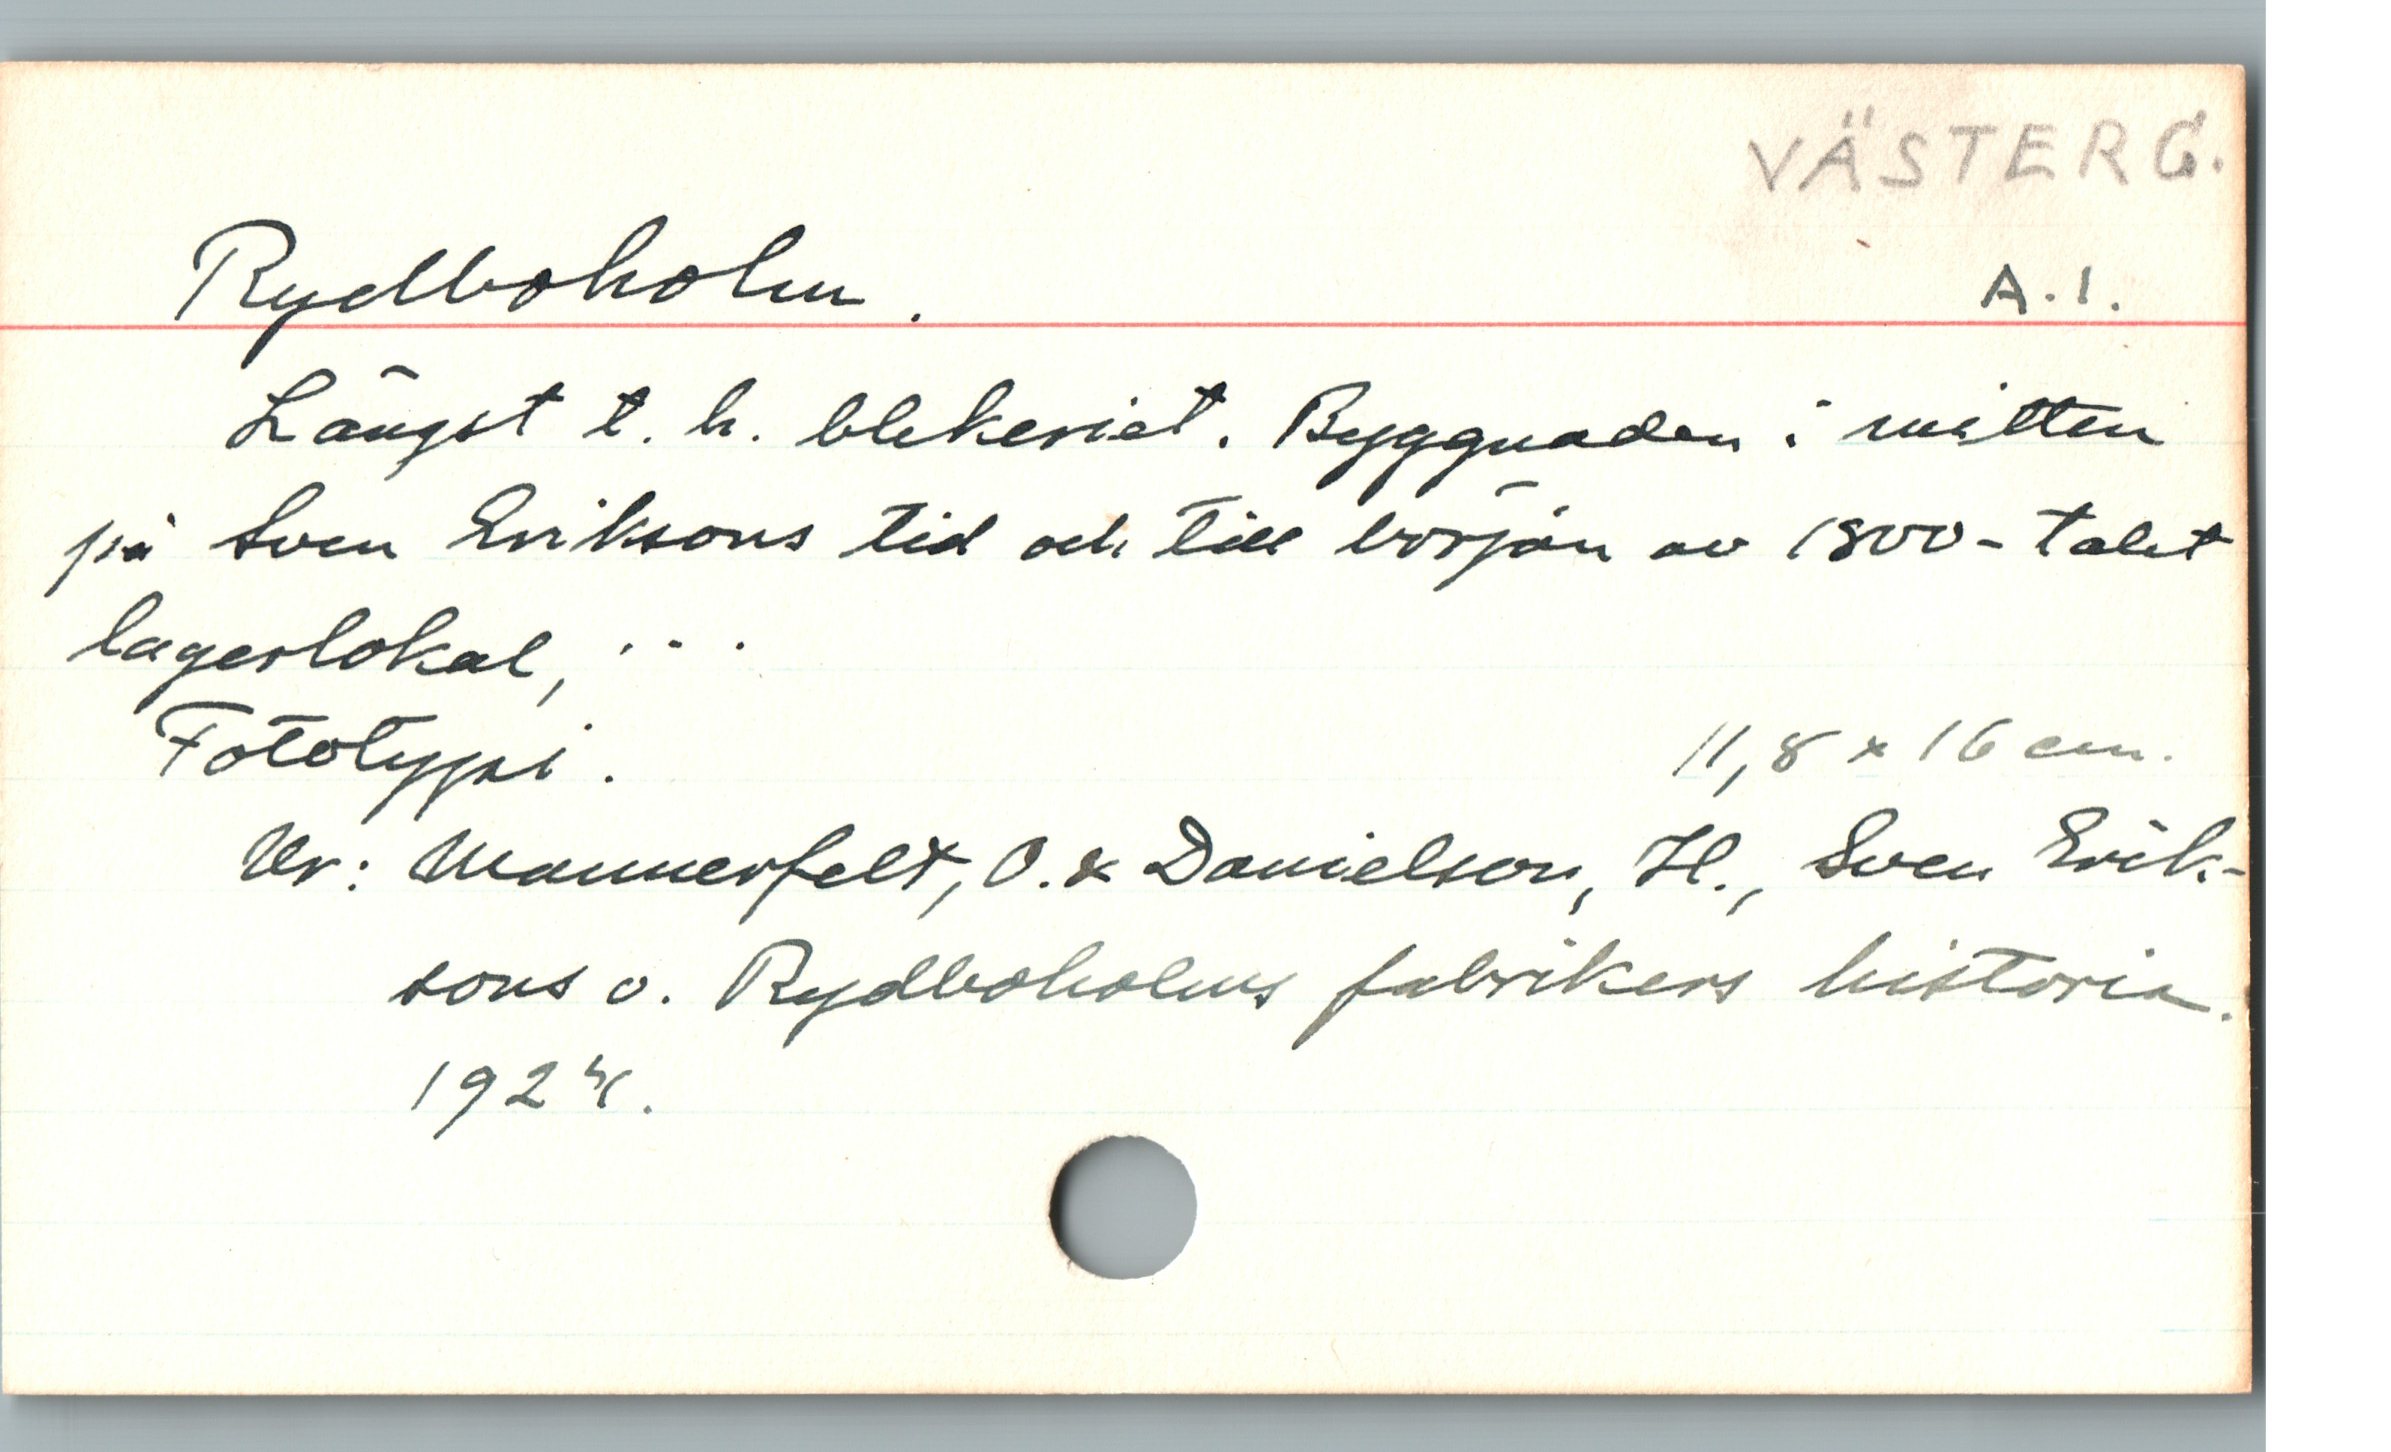 VÄSTERG.
Rydboholm.
A.1.
Längst t. h. blekeriet. Byggnaden i mitten
på Sven Eriksons tid och till början av 1800-talet
lagerlokal, ...
Fototypi.
11,8 x 16 cm.
Ur: Mannerfelt, O. & Danielson, H., Sven Erik-
sons o. Rydboholms fabrikers historia.
1924.